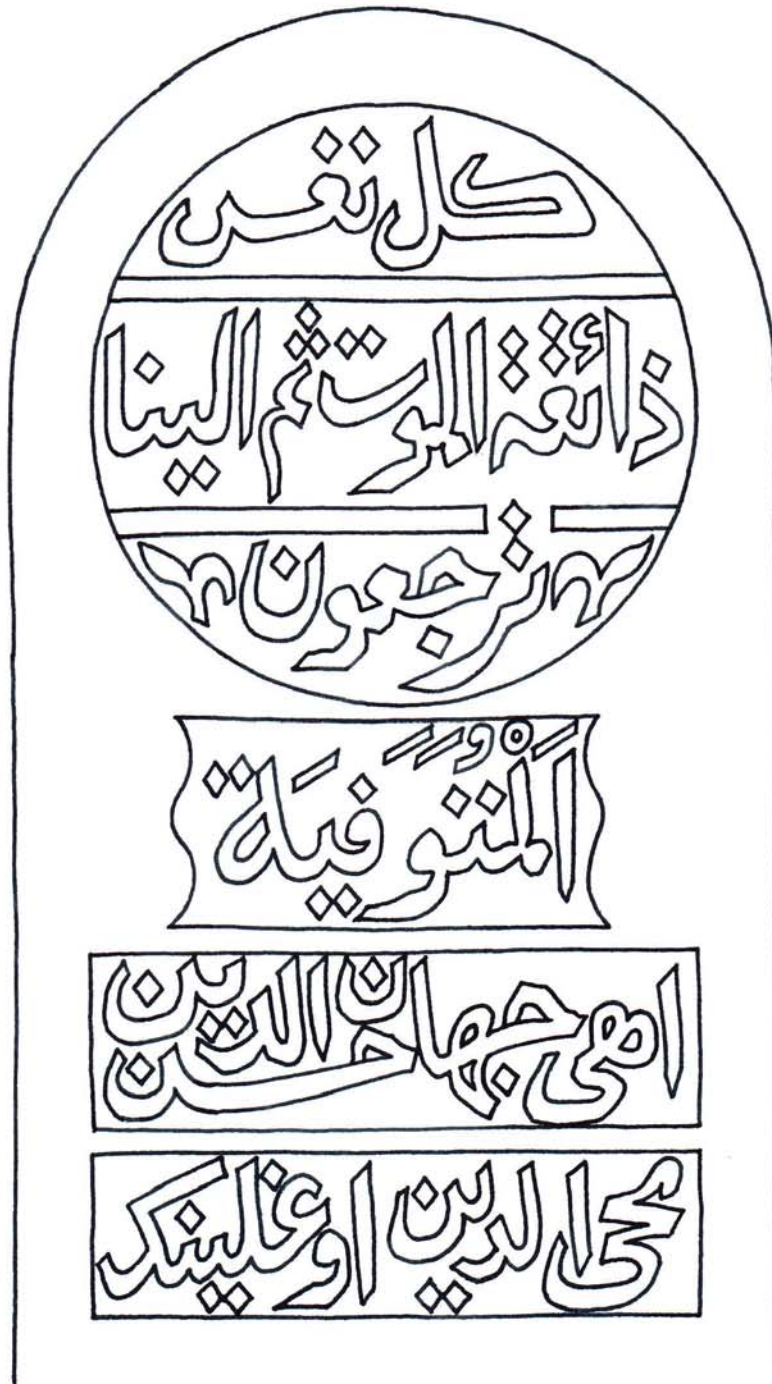 كل نفس
ذائقة الموت ثم الينا
ترجعون
اَلْمُتَوَفيَة
اهى جهان الدين حسن
محى الدين اوغلينك